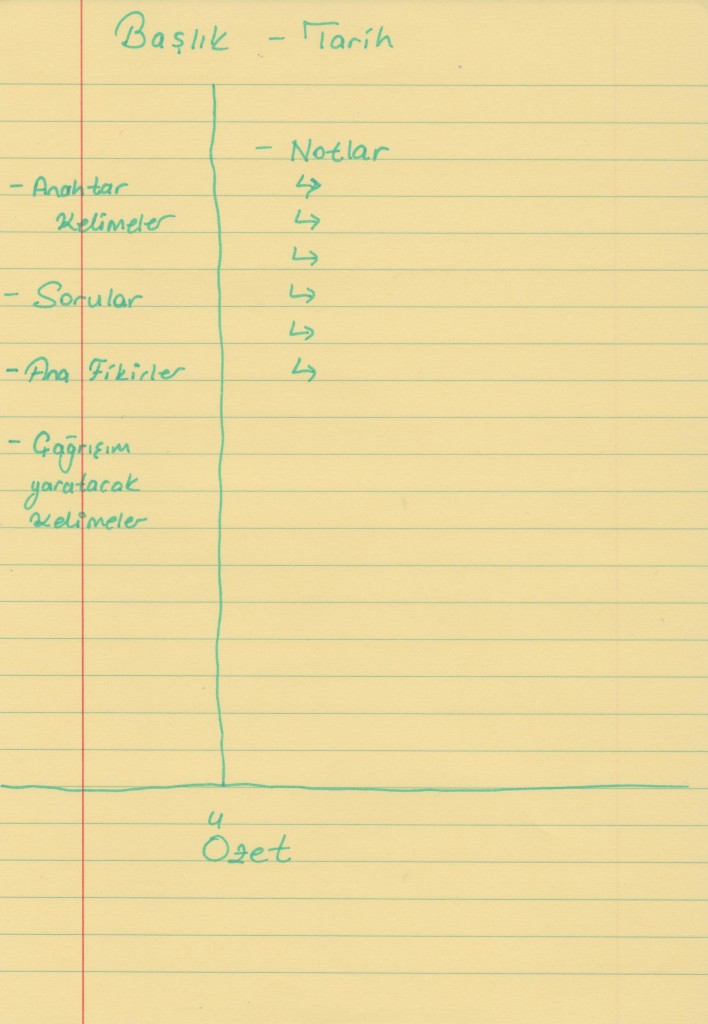 Başlık - Tarih
- Anahtar
Kelimeler
- Sorular
- Ana Fikirler
- Çağrışım
yaratacak
Kelimeler
- Notlar
↳
↳
↳
↳
↳
↳
Özet